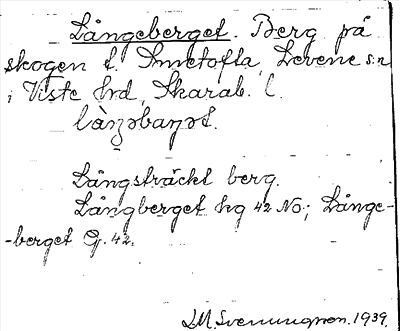 Långeberget. Berg på
skogen t. Smetofta, Levene sn
i Viste hrd, Skarab. l.
làŋəbarjət.
Långsträckt berg.
Långberget hg 42 NO.; Långe-
-berget G. 42.
1939.